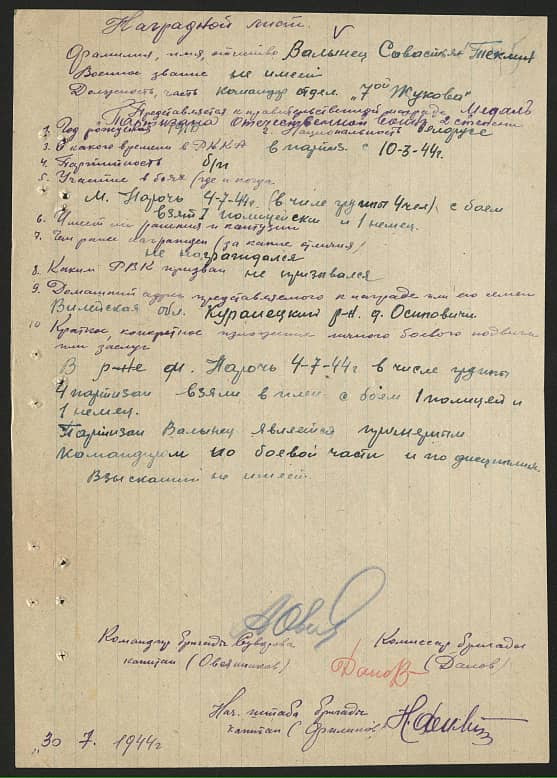 Наградной лист.
Фамилия, имя, отчество Валынец Савастьян
Военное звание не имеет
Должность, часть командир отдел. "7ой Жукова"
Представляется к правительственной награде Медаль
Партизана Отечественной войны 2 степени
1. Год рождения 2. Национальность белорус
3. С какого времени в РККА в партиз. с 10-3-44г.
4. Партийность б/п
5. Участие в боях (где и когда
М. Нарочь 4-7-44г. (в числе группы 4 чел) с боем
взят 1 полицейски и 1 немец.
6. Имеет ли ранения и контузии
7. Чем ранее награжден (за какие отличия)
не награждался
8. Каким РВК призван не призывался
9. Домашний адрес представляемого к награде или его семьи
Вилейская обл. Куранецкий р-н. д. Осиповичи
10 Краткое, конкретное изложение личного боевого подвига
или заслуг
В р-не м. Нарочь 4-7-44г в числе группы
4 партизан взяли в плен с боем 1 полицей и
1 немец.
Партизан Валынец является примерным
командиром по боевой части и по дисциплине.
Взысканий не имеет.
Командир бригады Суворова
капитан (Овсянников)
Комиссар бригады
(Данов)
Нач. штаба бригады
капитан (Филинов
"30 7. 1944г